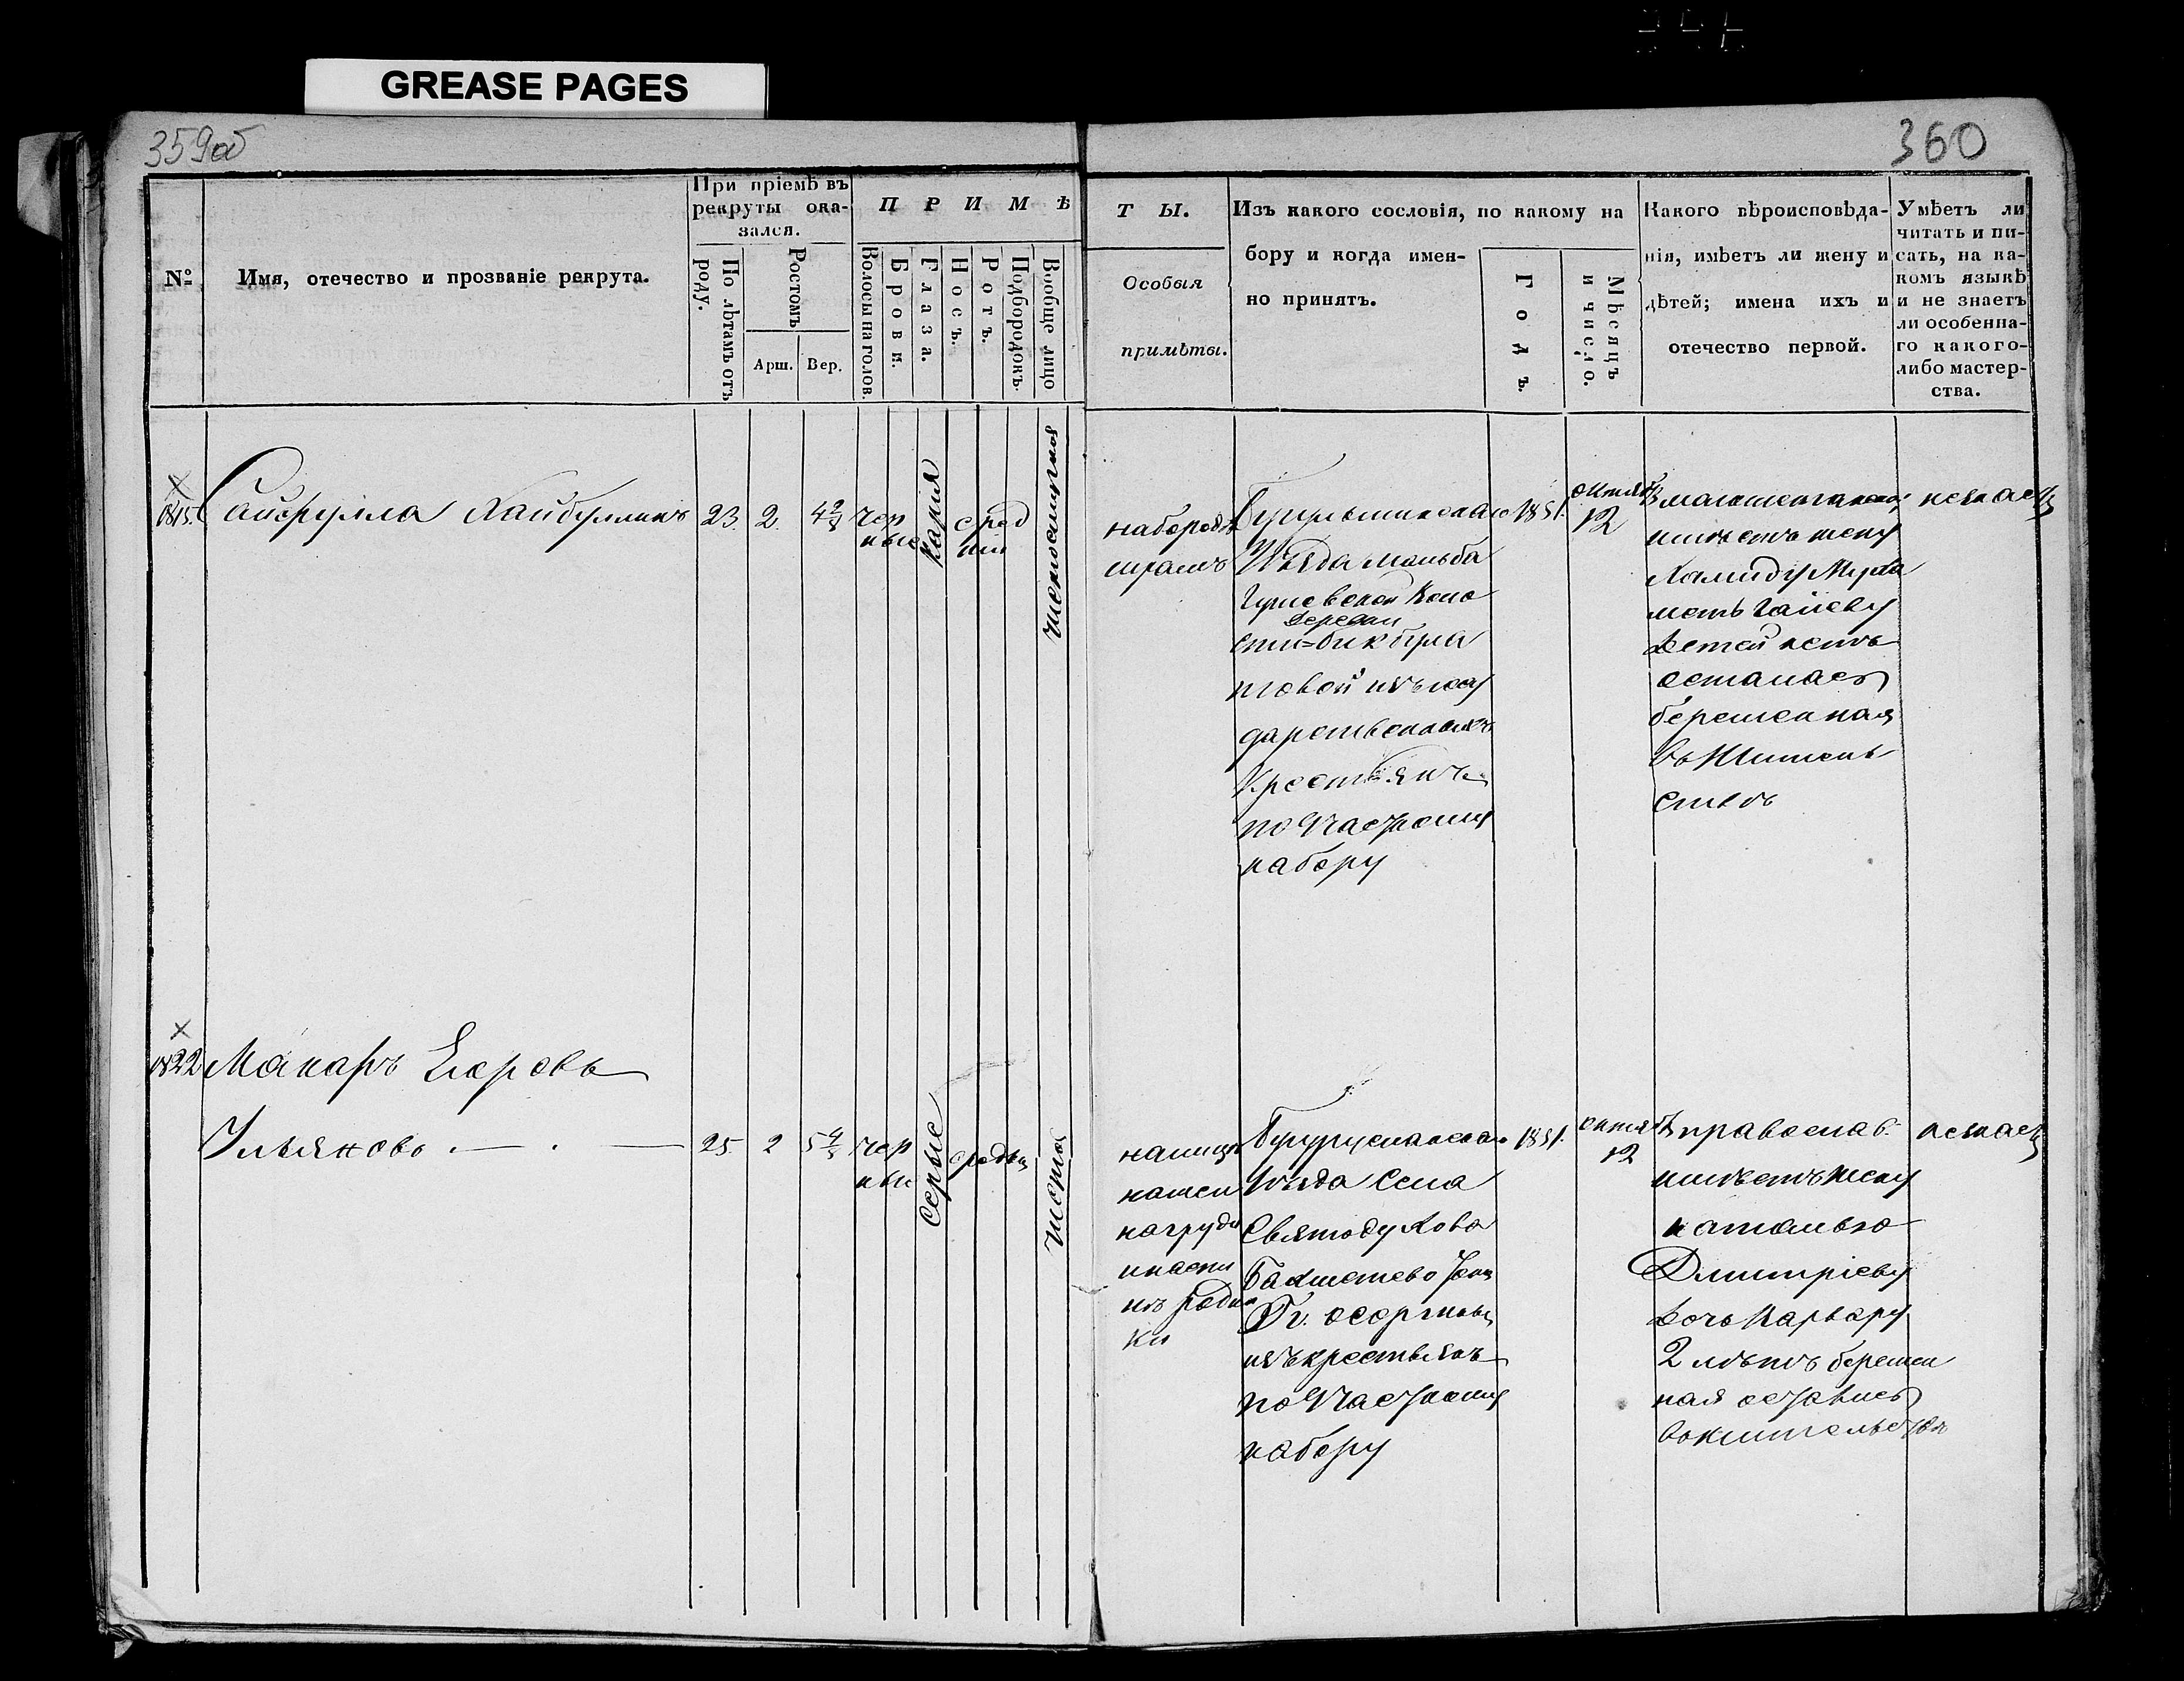 GREASE PAGES
359об
360
№
Имя, отечество и прозваніе рекрута.
При пріемѣ въ
рекруты ока-
зался.
По лѣтамъ отъ
роду.
Ростомъ
Арш.
Вер.
ПРИМѢ
Волосы на голов.
Брови.
Глаза.
Носъ.
Ротъ.
Подбородокъ.
Вообще лицо
ТЫ.
Особыя
примѣты.
Изъ какого сословія, по какому на
бору и когда имен-
но принятъ.
Годъ.
Мѣсяцъ
и число.
Какого вѣроисповѣда-
нія, имѣетъ ли жену и
дѣтей; имена ихъ и
отечество первой.
Умѣетъ ли
читать и пи-
сать, на ка-
комъ языкѣ
и не знаетъ
ли особенна-
го какого-
либо мастер-
ства.
Сайфулла Хайбуллинъ
23.
2.
4 2/8
чер
ные
карія
сред
ній
на бородѣ
шрамъ
Бугульминскаго
Уѣзда
Гушевской Воло
деревни
сти
новой изъ госу
дарственныхъ
Крестьянъ
по Частному
набору
1851.
октяб
12
магометанской
имѣетъ жену
Хамиду Муха
метъ Галіеву
детей нетъ
осталась
беременная
въ Житель
ствѣ
незнаетъ
1822
Макаръ Егоровъ
Ульяновъ
25.
2
5 4/8
чер
ные
Серые
средн
чисто
на груди
родин
ки
Бугурусланскаго
Уѣзда Села
Святодухова
Бахметево тожъ
изъ крестьянъ
по Частному
набору
1851.
октяб
12
православ.
имѣетъ жену
наталью
Дмитріеву
дочь Варвару
2 лѣтъ беремен
ная остались
въ жительствѣ
незнаетъ